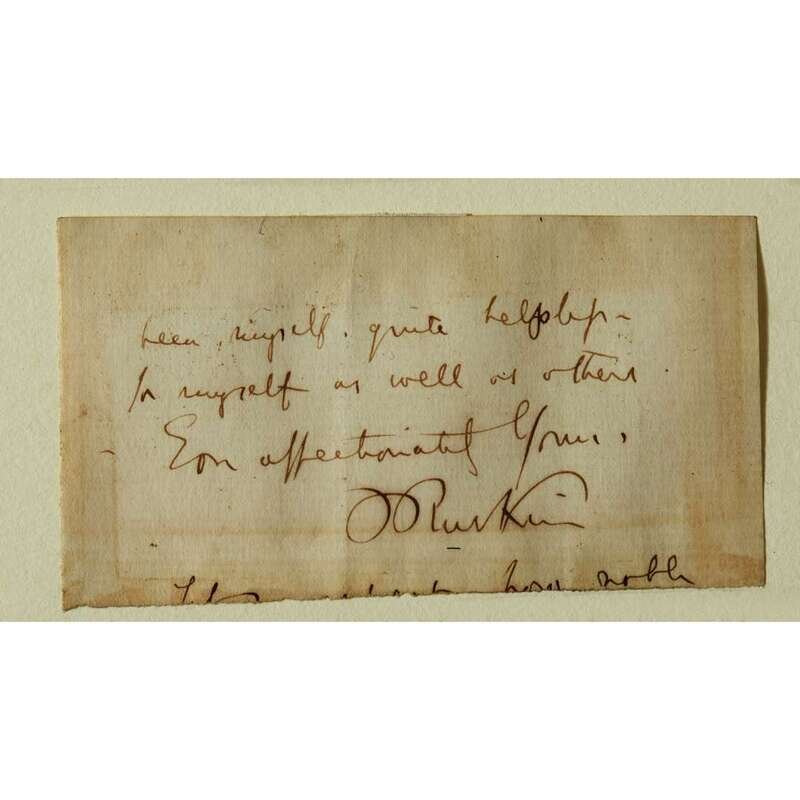 been, myself. quite helpless -
for myself as well as others.
Ever affectionately Yours.
JRuskin
how noble